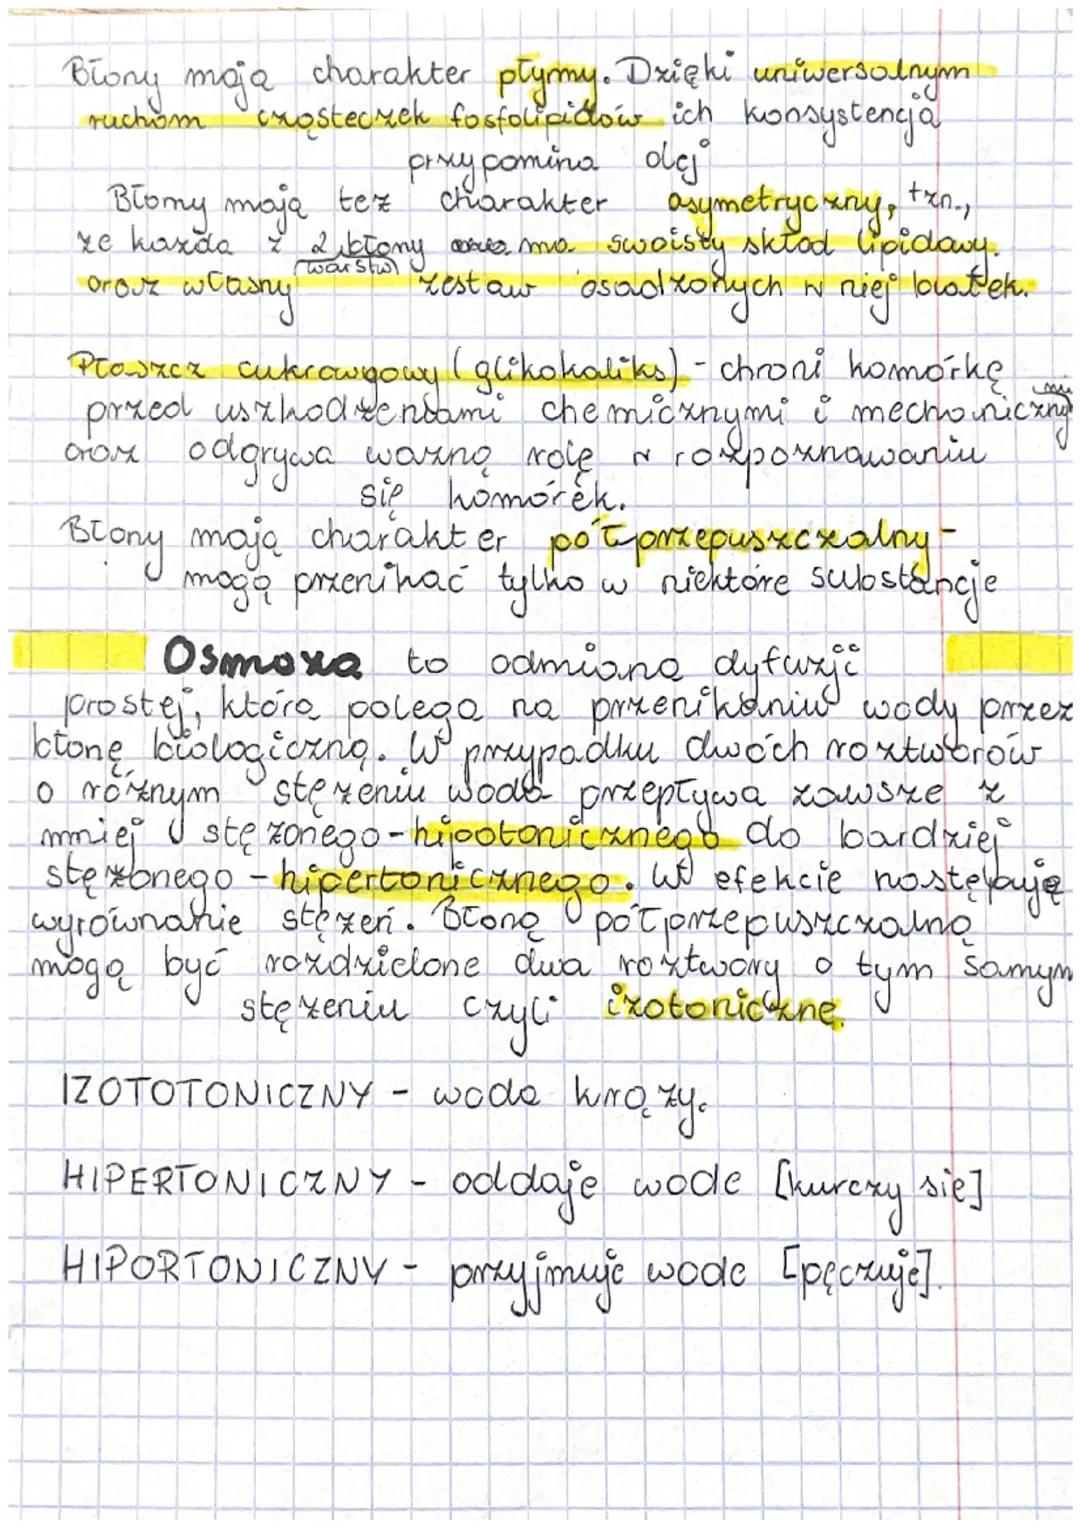 Błony mają charakter płynny. Dzięki uniwersalnym
ruchom cząsteczek fosfolipidów ich konsystencja
przypomina olej
Błony mają też charakter asymetryczny, tzn.,
że każda z 2 błony ma swoisty skład lipidowy.
warstw
oraz własny zestaw osadzonych w niej białek.
Płaszcz cukrowgowy (glikokaliks) - chroni komórkę
przed uszkodzeniami chemicznymi i mechanicznymi
oraz odgrywa ważną rolę w rozpoznawaniu
się komórek.
Błony mają charakter półprzepuszczalny -
mogą przenikać tylko w niektóre substancje
Osmoza to odmiana dyfuzji
prostej, która polega na przenikaniu wody przez
błonę biologiczną. W przypadku dwóch roztworów
o różnym stężeniu woda przepływa zawsze z
mniej stężonego - hipotonicznego do bardziej
stężonego - hipertonicznego. W efekcie następuję
wyrównanie stężeń. Błoną półprzepuszczalną
mogą być rozdzielone dwa roztwory o tym samym
stężeniu czyli izotoniczne.
IZOTOTONICZNY - woda krąży.
HIPERTONICZNY - oddaje wode [kurczy się]
HIPORTONICZNY - przyjmuje wode [pęcznieje].